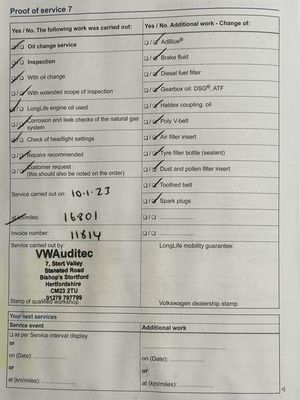 Proof of service 7
Yes / No. The following work was carried out:
Oil change service
Inspection
With oil change
With extended scope of inspection
LongLife engine oil used
Corrosion and leak checks of the natural gas
system
Check of headlight settings
Repairs recommended
Customer request
(this should also be noted on the order)
Service carried out on: 10.1.23
at km/miles: 16801
Invoice number: 11814
Service carried out by:
VWAuditec
7, Stort Valley
Stansted Road
Bishop's Stortford
Hertfordshire
CM23 2TU
01279 797799
Stamp of qualified workshop
Yes / No. Additional work - Change of:
AdBlue®
Brake fluid
Diesel fuel filter
Gearbox oil: DSG®, ATF
Haldex coupling: oil
Poly V-belt
Air filter insert
Tyre filler bottle (sealant)
Dust and pollen filter insert
Toothed belt
Spark plugs
LongLife mobility guarantee:
Volkswagen dealership stamp
Your next services
Service event
as per Service interval display
or
on (Date):
or
at (km/miles):
Additional work
on (Date):
or
at (km/miles):